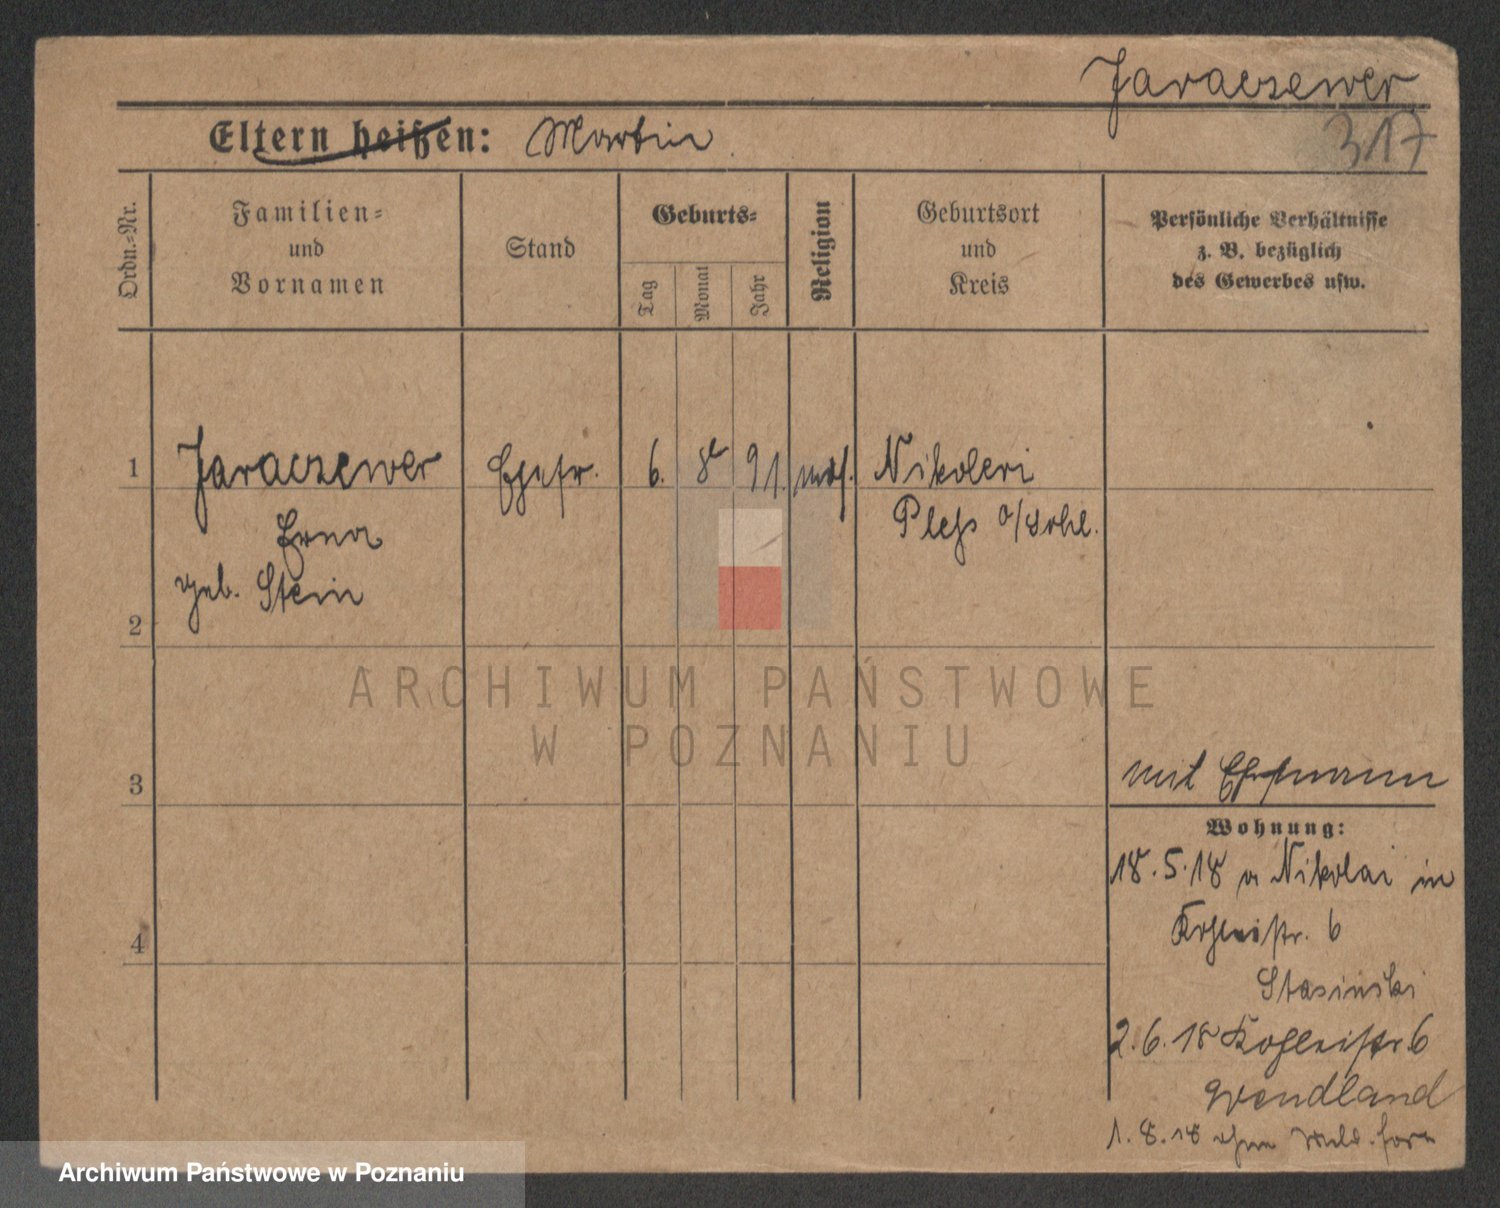 Jaraczewer
317
Eltern heißen: Martin
Ordn.-Nr.
Familien-
und
Vornamen
Stand
Geburts-
Tag
Monat
Jahr
Religion
Geburtsort
und
Kreis
Persönliche Verhältnisse
z. B. bezüglich
des Gewerbes usw.
1 Jaraczewer Ehefr. 6. 8 91. mos. Nikolai
Pleß o/Schl.
Erna
geb. Stein
2
ARCHIWUM PAŃSTWOWE
W POZNANIU
3
mit Ehemann
Wohnung:
18.5.18 a Nikolai in
str. 6
4
Stasinski
2.6.18 str. 6
Wendland
1.8.18 ohne Meld. fort
Archiwum Państwowe w Poznaniu